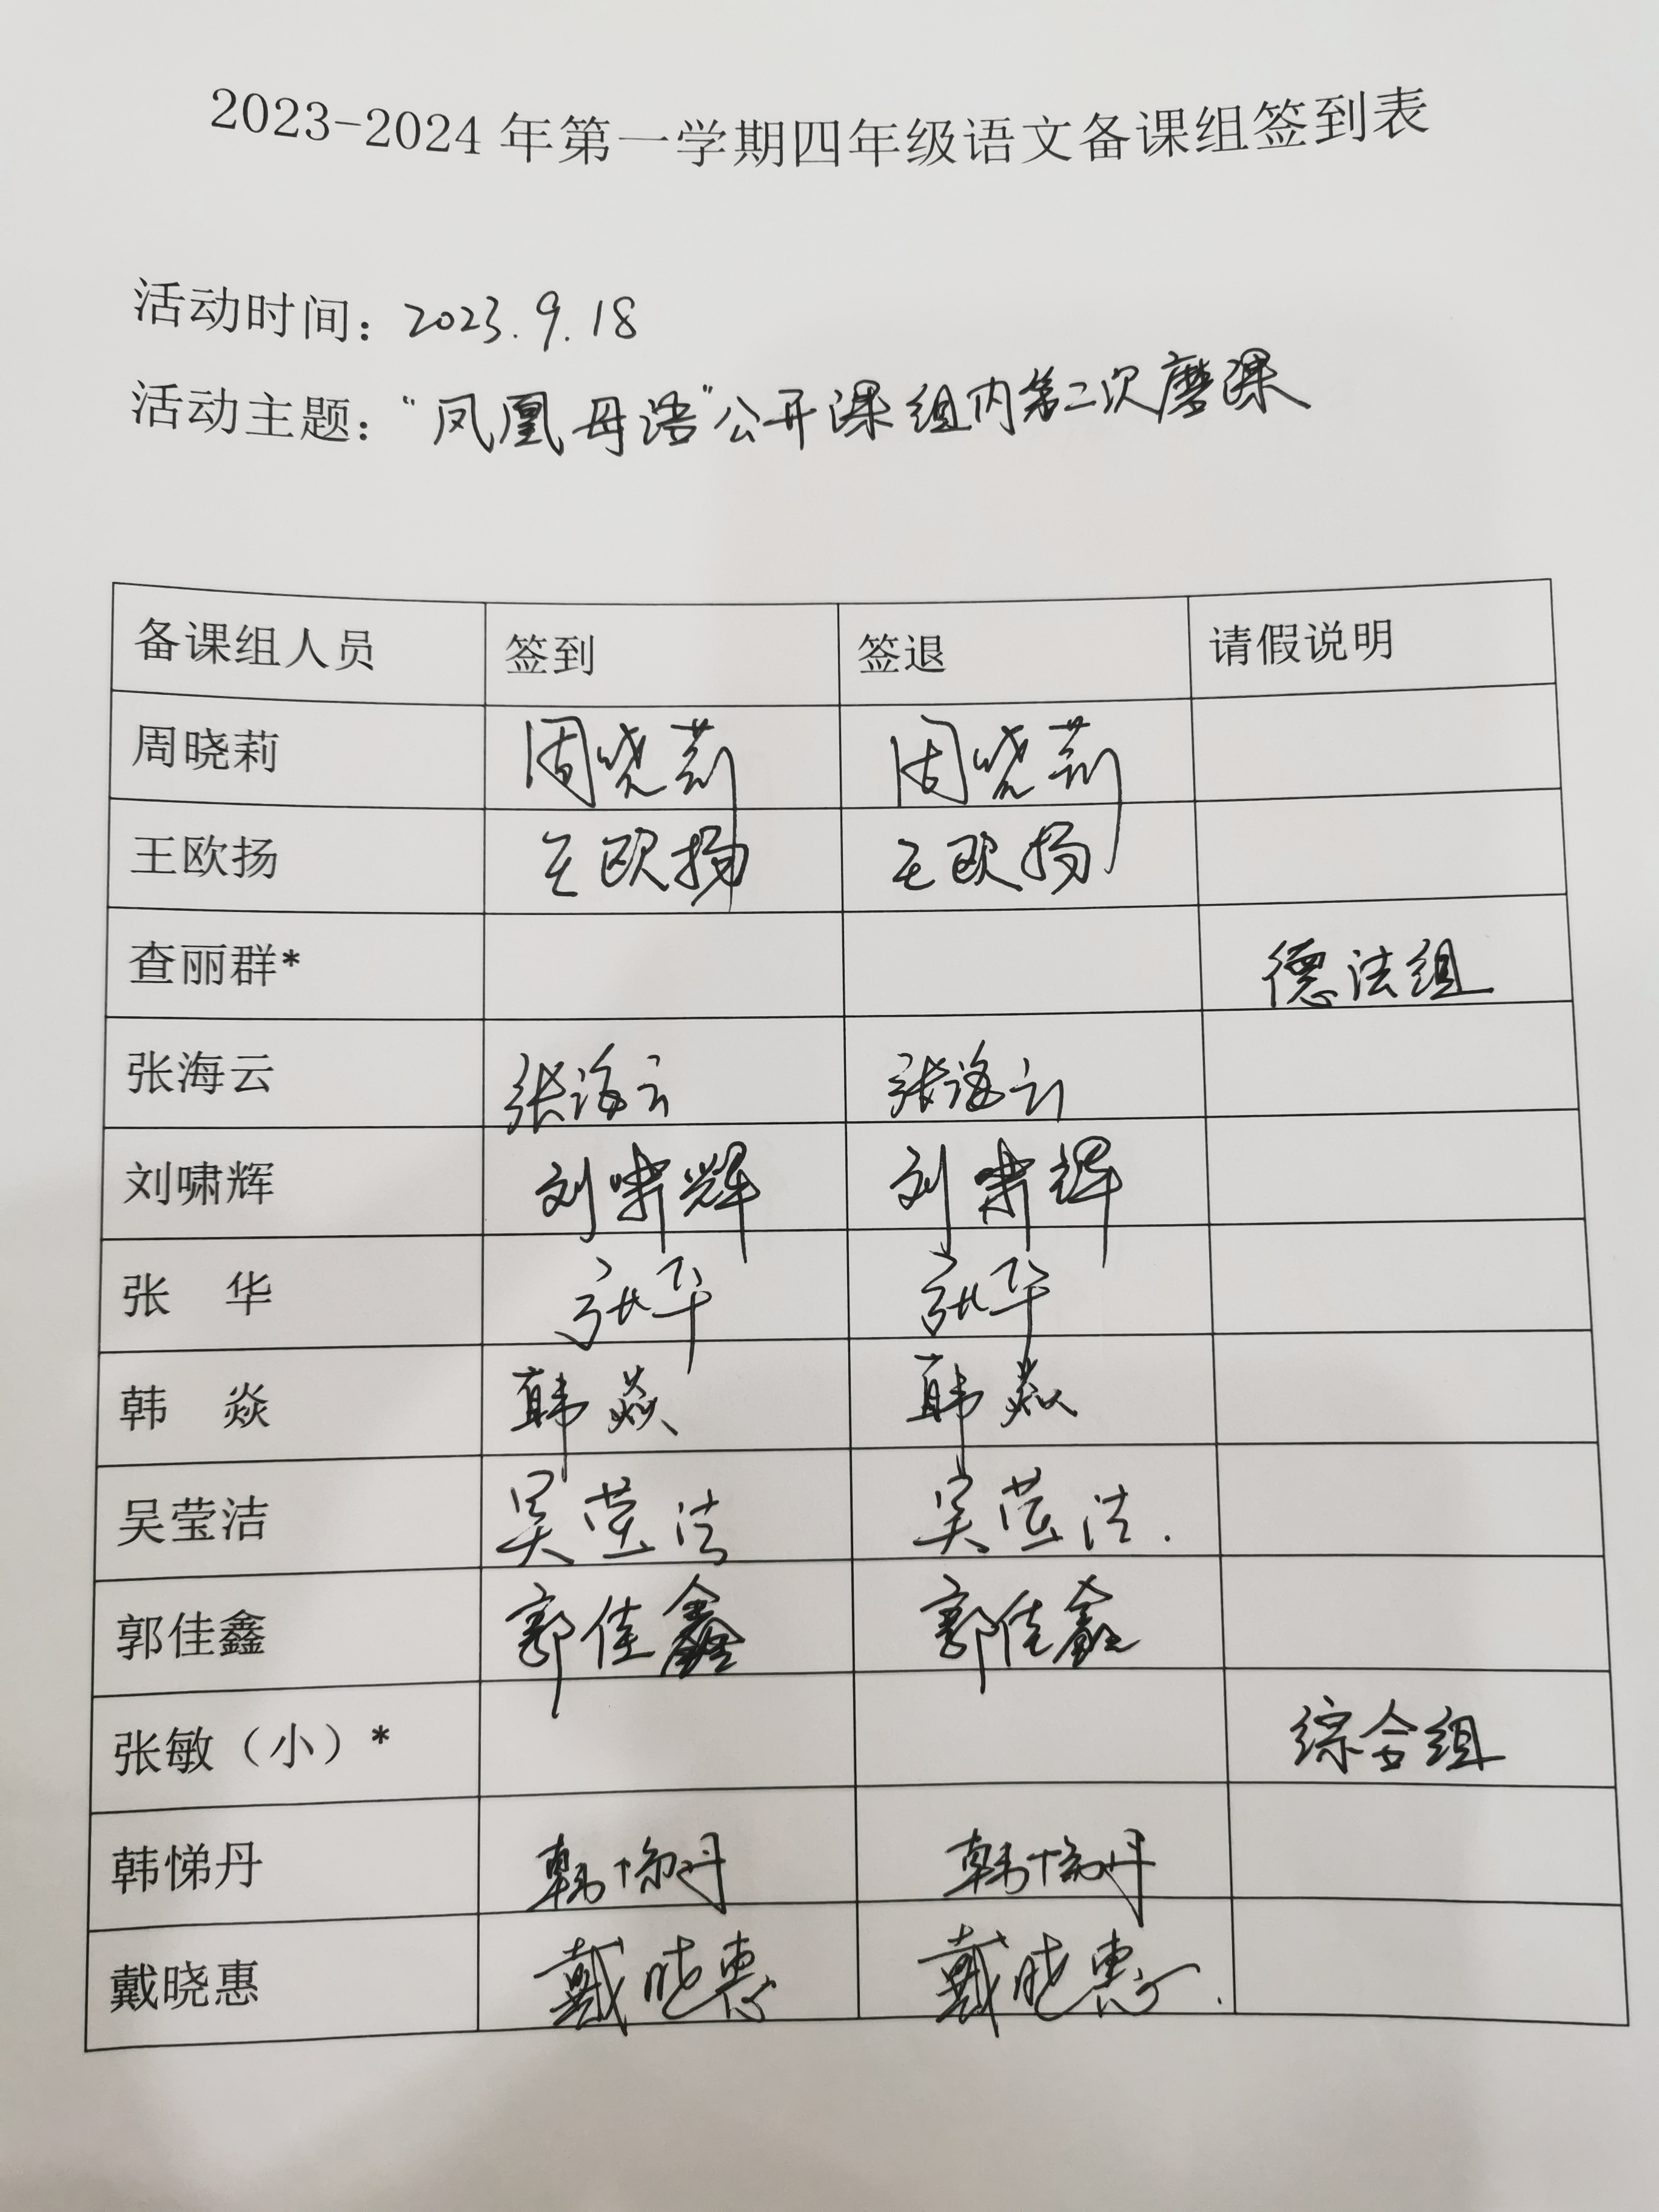 2023-2024 年第一学期四年级语文备课组签到表
活动时间：2023.9.18
活动主题：“凤凰母语”公开课组内第二次磨课
备课组人员 签到 签退 请假说明
周晓莉 周晓莉 周晓莉
王欧扬 王欧扬 王欧扬
查丽群* 德法组
张海云 张海云 张海云
刘啸辉 刘啸辉 刘啸辉
张 华 张华 张华
韩 焱 韩焱 韩焱
吴莹洁 吴莹洁 吴莹洁.
郭佳鑫 郭佳鑫 郭佳鑫
张敏（小）* 综合组
韩悌丹 韩悌丹 韩悌丹
戴晓惠 戴晓惠 戴晓惠.